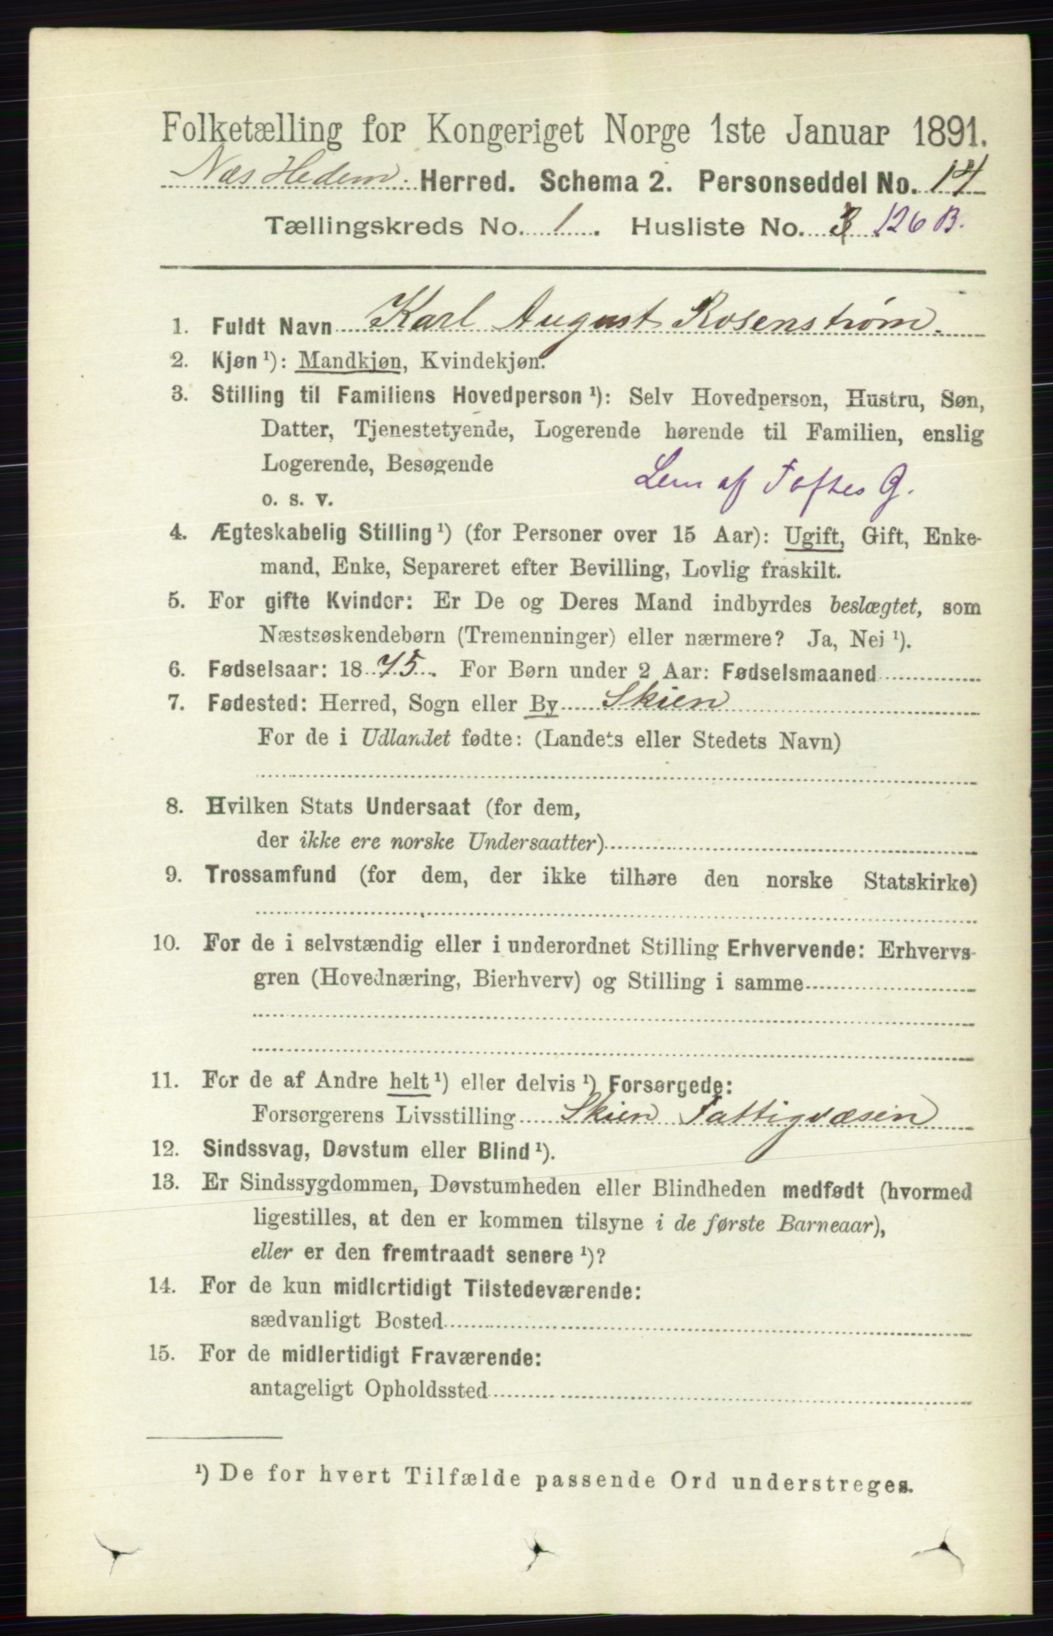 Folketælling for Kongeriget Norge 1ste Januar 1891.
Næs Hedem. Herred. Schema 2. Personseddel No. 14
Tællingskreds No. 1. Husliste No. 3 126 B.
1. Fuldt Navn Karl August Rosenstrøm.
2. Kjøn ¹): Mandkjøn, Kvindekjøn.
3. Stilling til Familiens Hovedperson ¹): Selv Hovedperson, Hustru, Søn,
Datter, Tjenestetyende, Logerende hørende til Familien, enslig
Logerende, Besøgende
Lem af Toftes G.
o. s. v.
4. Ægteskabelig Stilling ¹) (for Personer over 15 Aar): Ugift, Gift, Enke-
mand, Enke, Separeret efter Bevilling, Lovlig fraskilt.
5. For gifte Kvinder: Er De og Deres Mand indbyrdes beslægtet, som
Næstsøskendebørn (Tremenninger) eller nærmere? Ja, Nei ¹).
6. Fødselsaar: 1875. For Børn under 2 Aar: Fødselsmaaned
7. Fødested: Herred, Sogn eller By Skien
For de i Udlandet fødte: (Landets eller Stedets Navn)
8. Hvilken Stats Undersaat (for dem,
der ikke ere norske Undersaatter)
9. Trossamfund (for dem, der ikke tilhøre den norske Statskirke)
10. For de i selvstændig eller i underordnet Stilling Erhvervende: Erhvervs-
gren (Hovednæring, Bierhverv) og Stilling i samme
11. For de af Andre helt ¹) eller delvis ¹) Forsørgede:
Forsørgerens Livsstilling Skien Fattigvæsen
12. Sindssvag, Døvstum eller Blind ¹).
13. Er Sindssygdommen, Døvstumheden eller Blindheden medfødt (hvormed
ligestilles, at den er kommen tilsyne i de første Barneaar),
eller er den fremtraadt senere ¹)?
14. For de kun midlertidigt Tilstedeværende:
sædvanligt Bosted
15. For de midlertidigt Fraværende:
antageligt Opholdssted
¹) De for hvert Tilfælde passende Ord understreges.